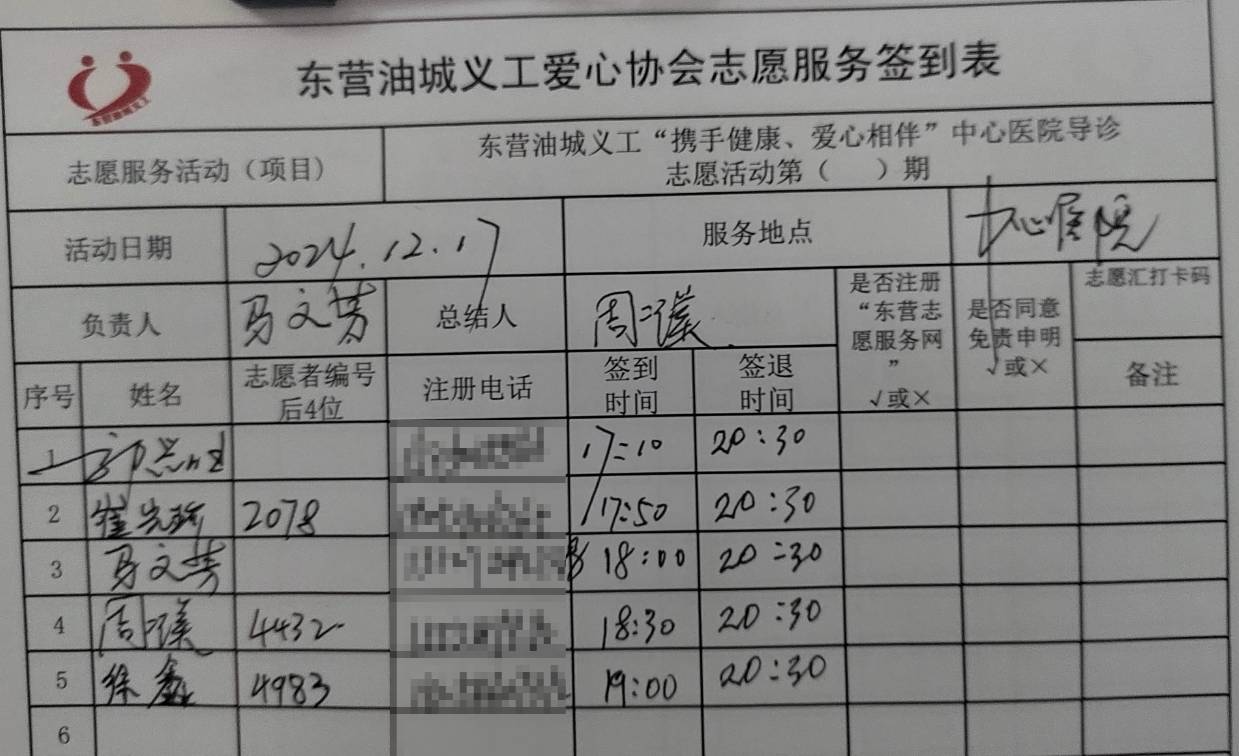 东营油城义工
东营油城义工爱心协会志愿服务签到表
志愿服务活动（项目）
东营油城义工“携手健康、爱心相伴”中心医院导诊
志愿活动第（ ）期
活动日期
2024.12.17
服务地点
中心医院
负责人
马文芳
总结人
周
是否注册
“东营志
愿服务网
”
√或×
是否同意
免责申明
√或×
志愿汇打卡码
备注
序号
姓名
志愿者编号
后4位
注册电话
签到
时间
签退
时间
1
17:10
20:30
2
崔
2078
17:50
20:30
3
马文芳
18:00
20:30
4
周
4432
18:30
20:30
5
徐鑫
4983
19:00
20:30
6